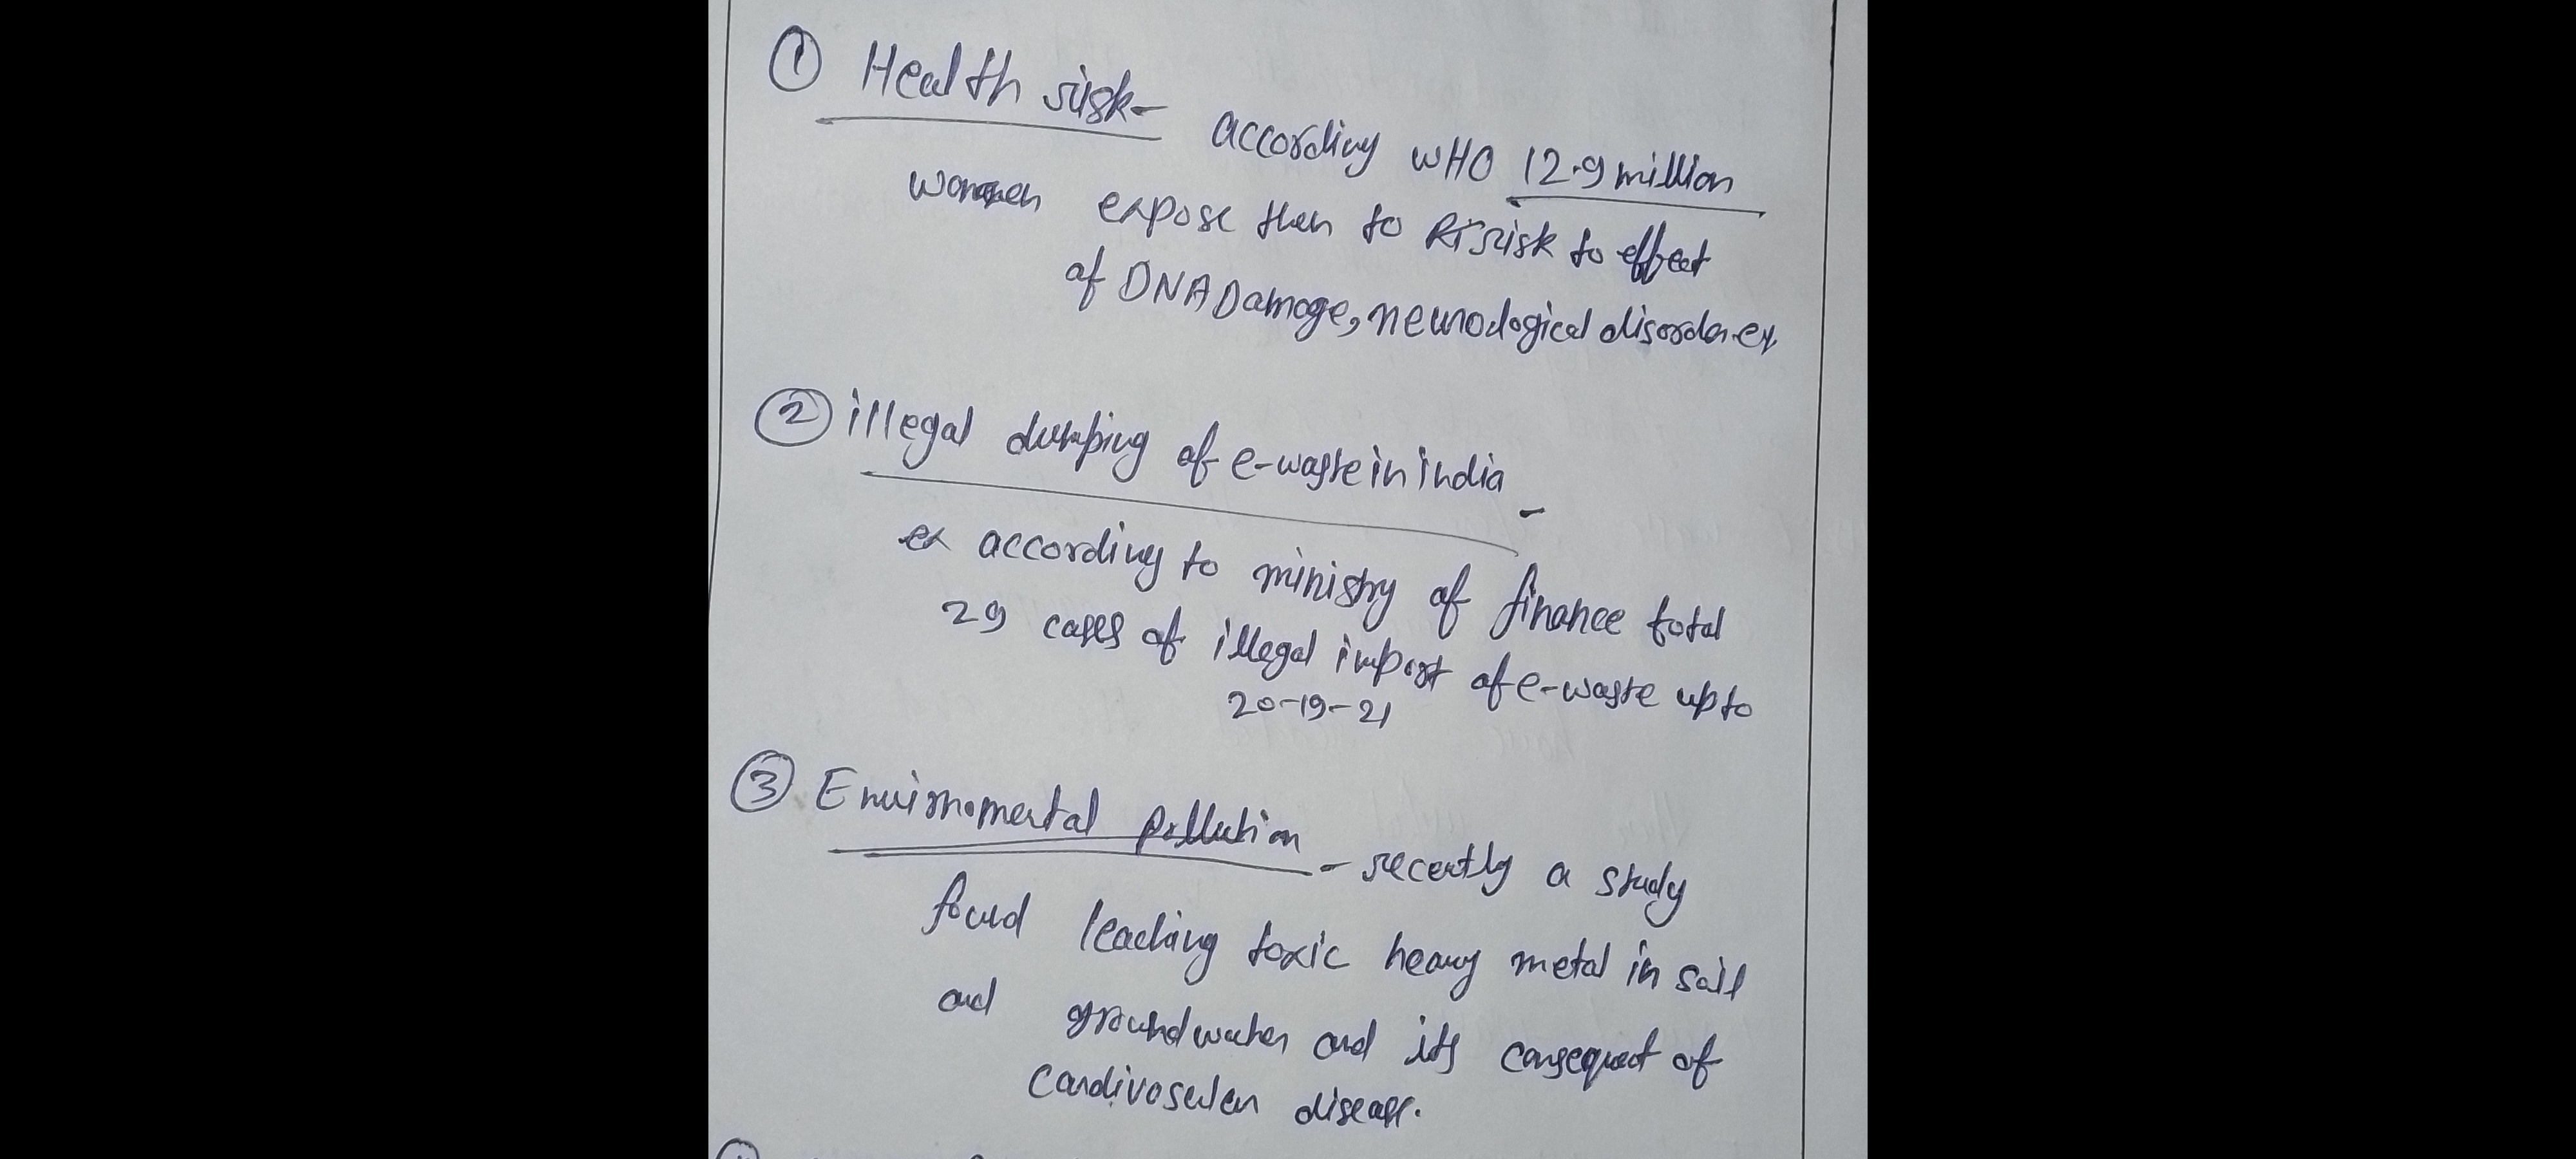 ① Health risk- according WHO 12.9 million
women expose then to risk to effect
of DNA Damage, neurological disorder
② illegal dumping of e-waste in india -
ex according to ministry of finance total
29 cases of illegal import of e-waste upto
20-19-21
③ Envirnomental pollution - recently a study
found leaching toxic heavy metal in soil
and groundwater and its consequent of
Cardivosculer disease.